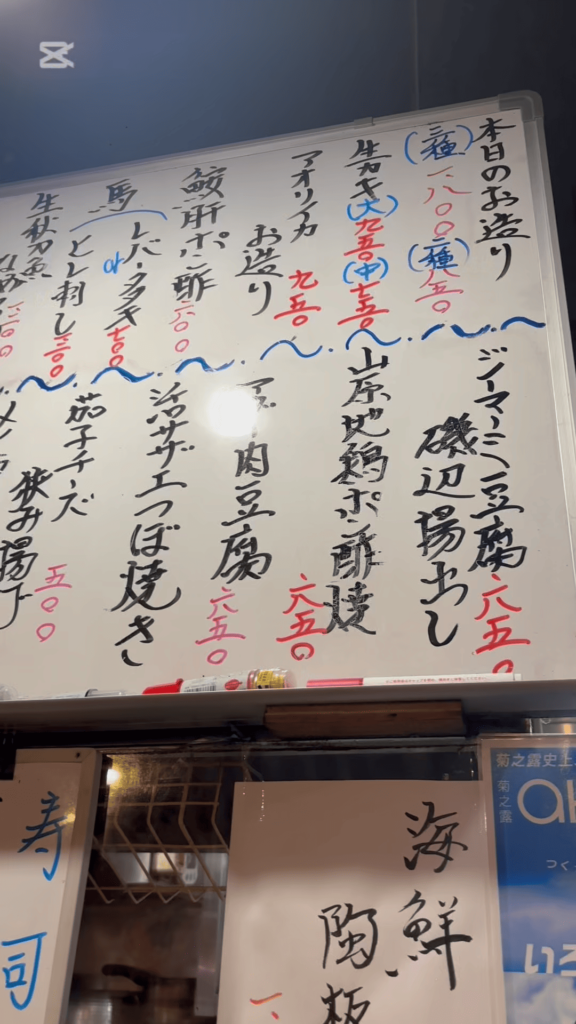 本日のお造り
(三種)一八〇〇 (二種)八五〇
生ガキ(大)九五〇(中)七五〇
アオリイカ
お造り 九五〇
鮟肝ポン酢 一六〇〇
馬
レバータタキ 七〇〇
or
とし刺し 一三〇〇
生秋刀魚
ジーマーミ豆腐
磯辺揚出し 六五〇
山原地鶏ポン酢焼 六五〇
肉豆腐 六五〇
活サザエつぼ焼き
茄子チーズ
挟み揚げ 五〇〇
海鮮
陶板
寿
司
菊之露史上
菊之露
つく